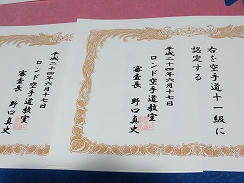 右を空手道十一級に
認定する
平成二十四年六月十七日
ロンド空手道教室
審査長 野口真史
平成二十四年六月十七日
ロンド空手道教室
審査長 野口真史